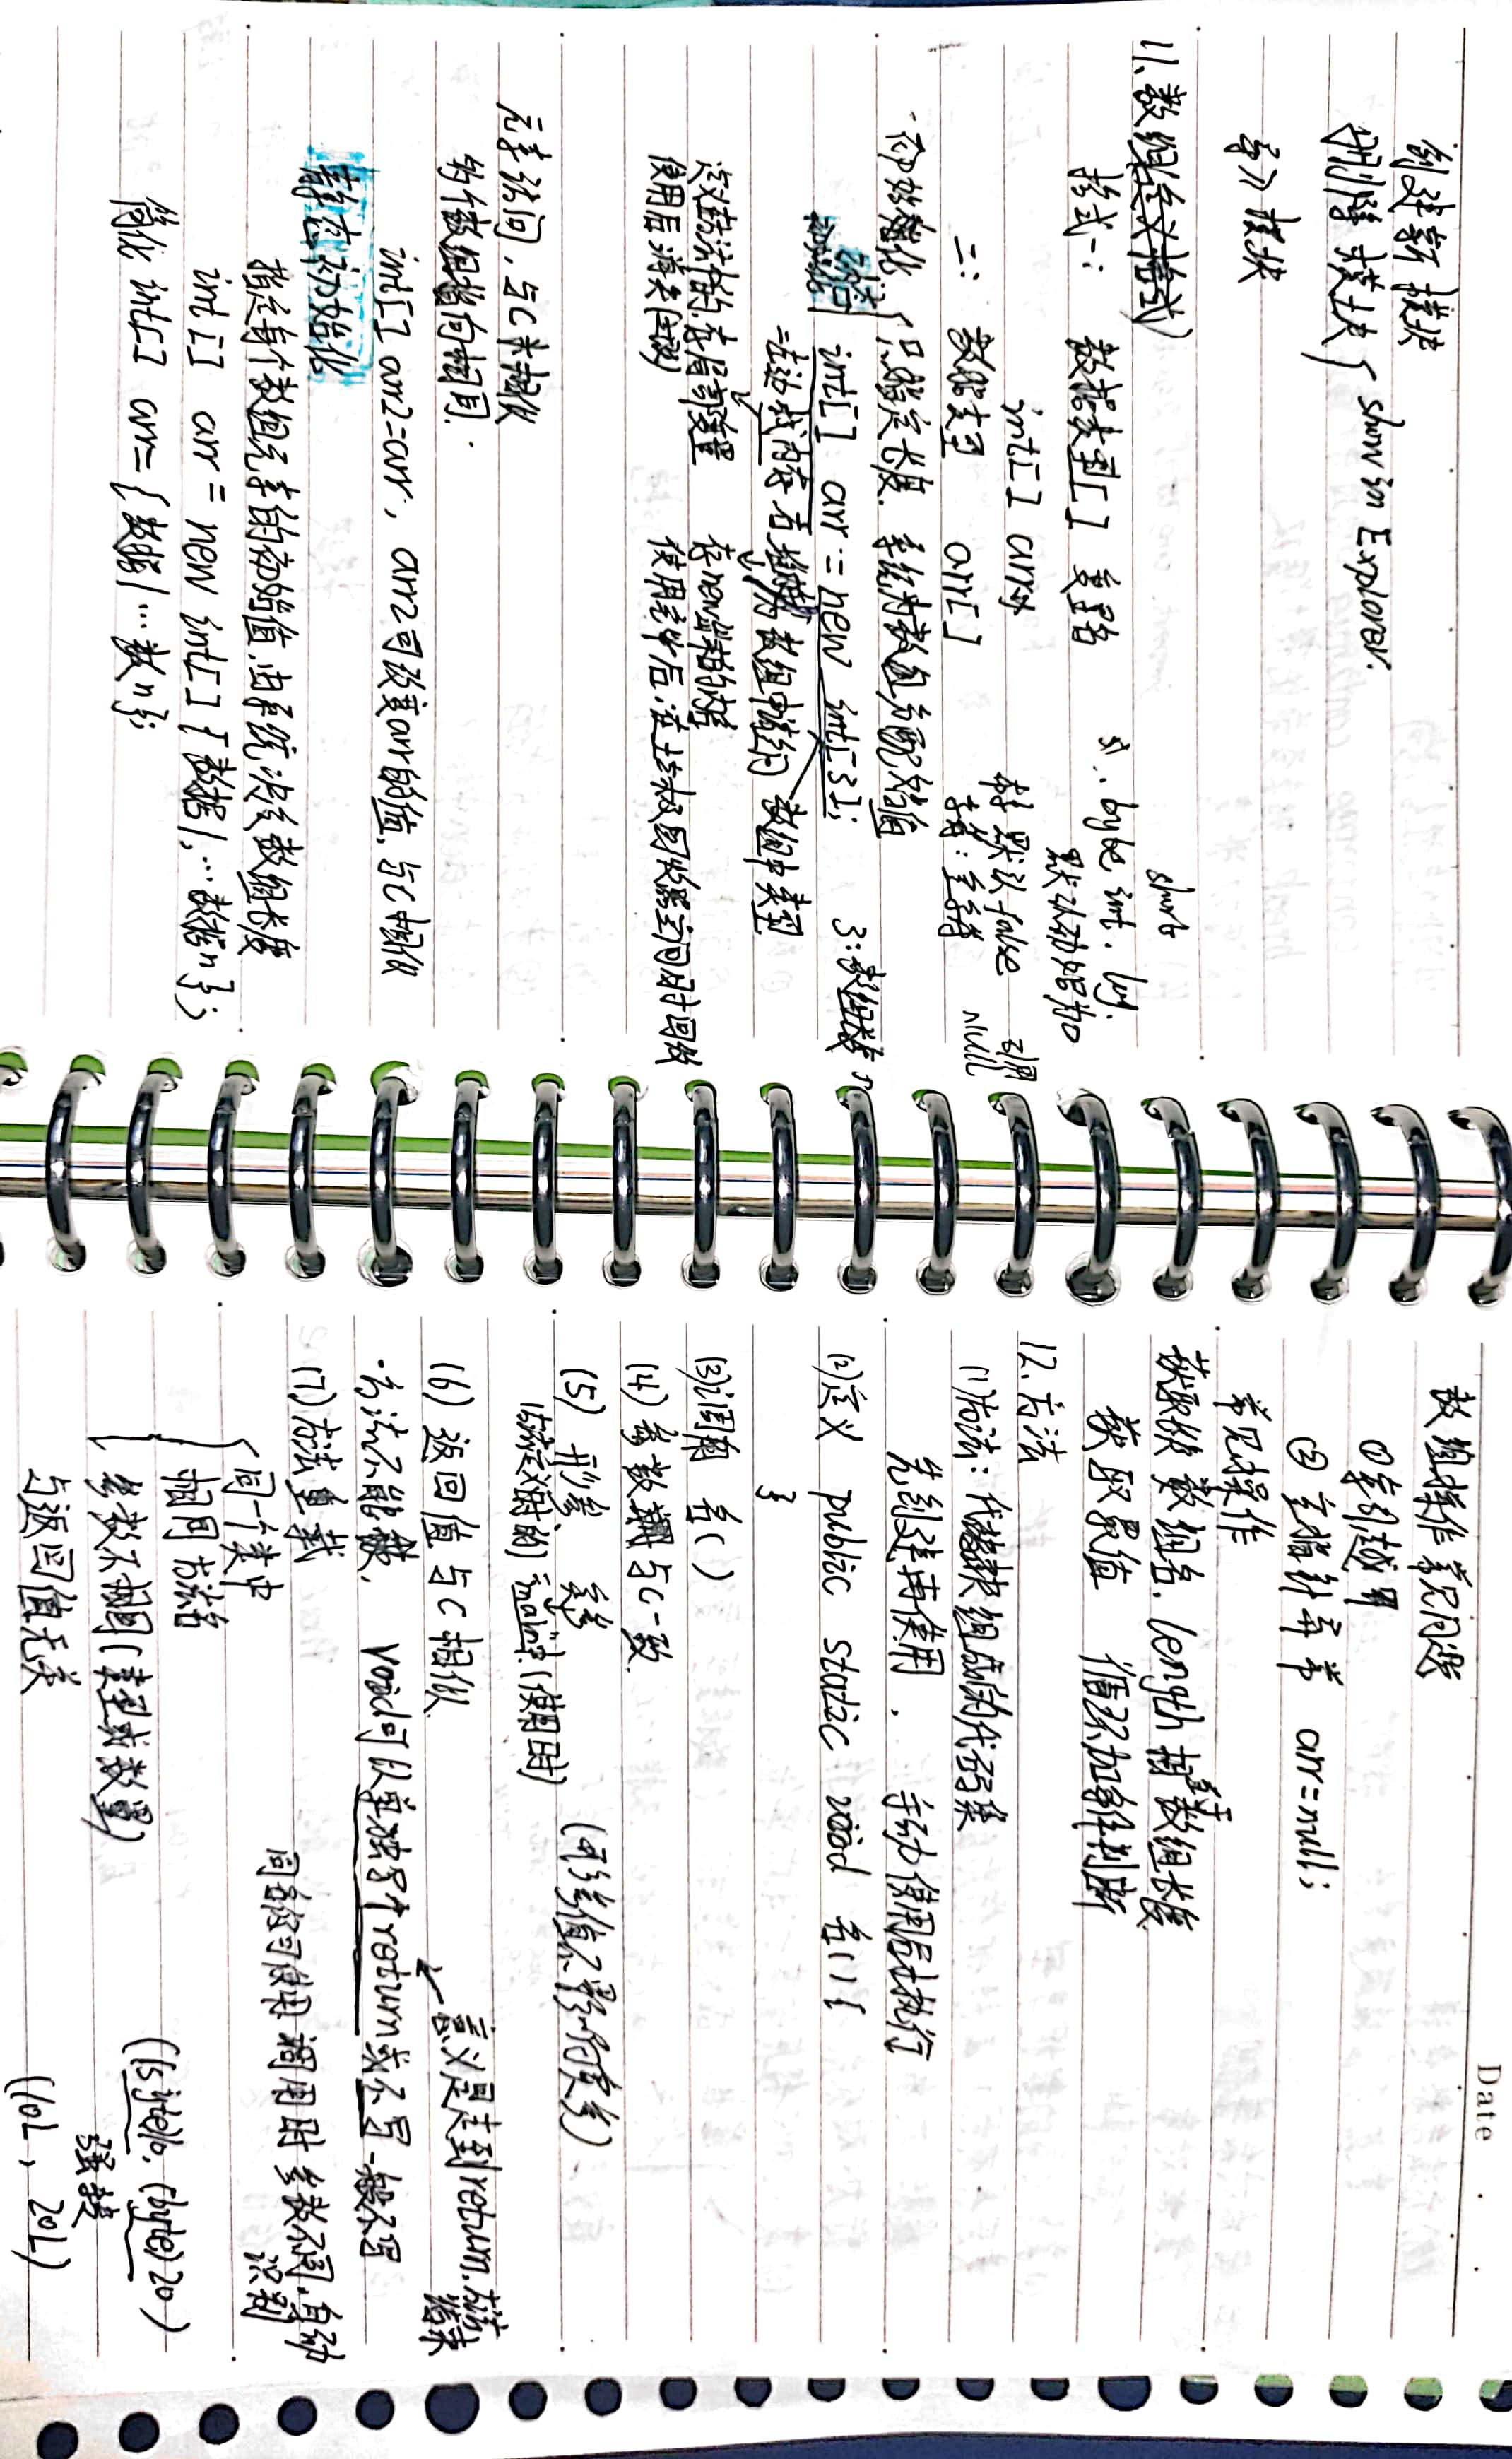 创建新模块
删除模块 { show in Explorer.
导入模块
11、数组(定义格式)
格式一: 数据类型[] 变量名
int[] arr
二: 数据类型 arr[]
short
byte int . log.
默认初始为0
布尔 默认 false
字符: 空字符
引用
null
初始化 只指定长度. 系统为数组分配初始值
动态
初始化
int[] arr = new int[3];
3: 数组长度
=左边 栈内存 右 堆内存 为数组申请空间 数组中类型
定义在方法中的,存局部变量
使用后消失
存new出来的内容
使用完毕后,在垃圾回收器空闲时回收
元素访问, 与C相似
多个数组指向相同.
int[] arr2=arr, arr2可改变arr的值, 与C相似
静态初始化
指定每个数组元素的初始值,由系统决定数组长度
int[] arr = new int[] {数据1, … 数据n};
简化 int[] arr= {数据1 … 数n};
Date
数组操作常见问题
①索引越界
② 空指针异常 arr=null;
常见操作
获取 数组名. length 相当于 数组长度
获取最值 循环加条件判断
12.方法
(1)方法: 代码块组成的代码集
先创建再使用, 手动使用后才执行
(2)定义 public static void 名(){
}
(3)调用 名( )
(4) 参数 与C一致
(5) 形参、 实参 (形参值不影响实参)
(方法定义时的) main中(使用时)
(6) 返回值与C相似
意义是走到return,方法
结束
·方法不能嵌, void可以单独写个return或不写 一般不写
(7)方法重载
同名 可使用 调用时 参数不同,自动
识别
同一个类中
相同方法名
参数不相同(类型或数量)
与返回值无关
((byte)10, (byte)20)
强转
(10L, 20L)